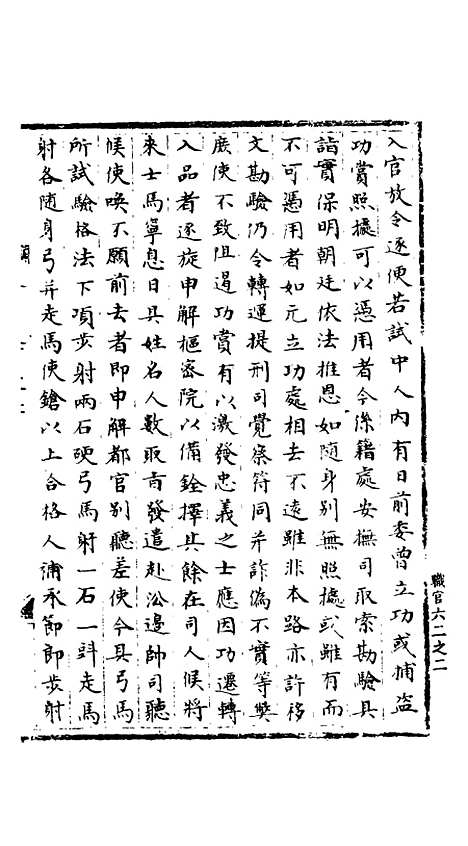 職官六二之二
入官放令逐便若試中人内有日前委曾立功或捕盗
功賞照據可以憑用者令係籍處安撫司取索勘驗具
詣實保明朝廷依法推恩如隨身别無照據或雖有而
不可憑用者如元立功處相去不遠雖非本路亦許移
文勘驗仍令轉運提刑司覺察符同并詐偽不實等弊
庶使不致阻遏功賞有以激發忠義之士應因功遷轉
入品者逐旋申解樞密院以備銓擇其餘在司人候將
來士馬寧息日具姓名人數取㫖發遣赴㳂邊帥司聽
候使喚不願前去者即申解都官别聽差使今具弓馬
所試驗格法下項步射兩石硬弓馬射一石一㪷走馬
射各隨身弓并走馬使鎗以上合格人補承節郎步射